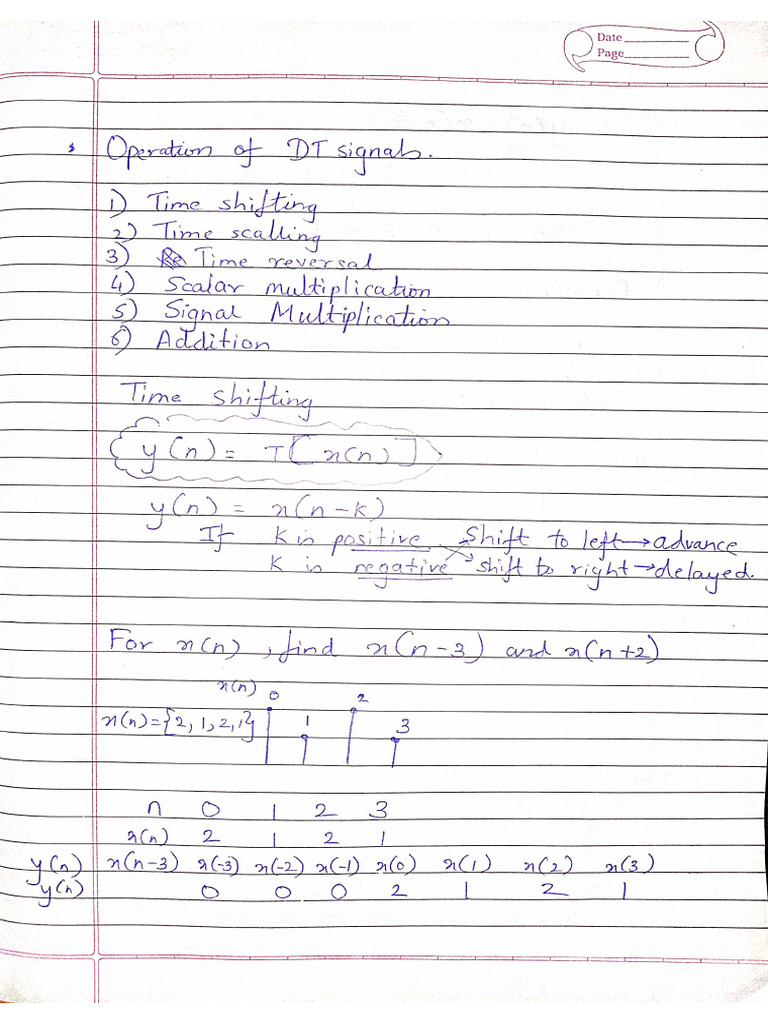 Date
Page
Operation of DT signals.
1) Time shifting
2) Time scalling
3) Time reversal
4) Scalar multiplication
5) Signal Multiplication
6) Addition
Time shifting
y(n) = T[x(n)]
y(n) = x(n-k)
If K is positive shift to left → advance
K is negative shift to right → delayed.
For x(n), find x(n-3) and x(n+2)
x(n) 0 2
x(n) = {2, 1, 2, 1} 1 3
n 0 1 2 3
x(n) 2 1 2 1
y(n) x(n-3) x(-3) x(-2) x(-1) x(0) x(1) x(2) x(3)
y(n) 0 0 0 2 1 2 1